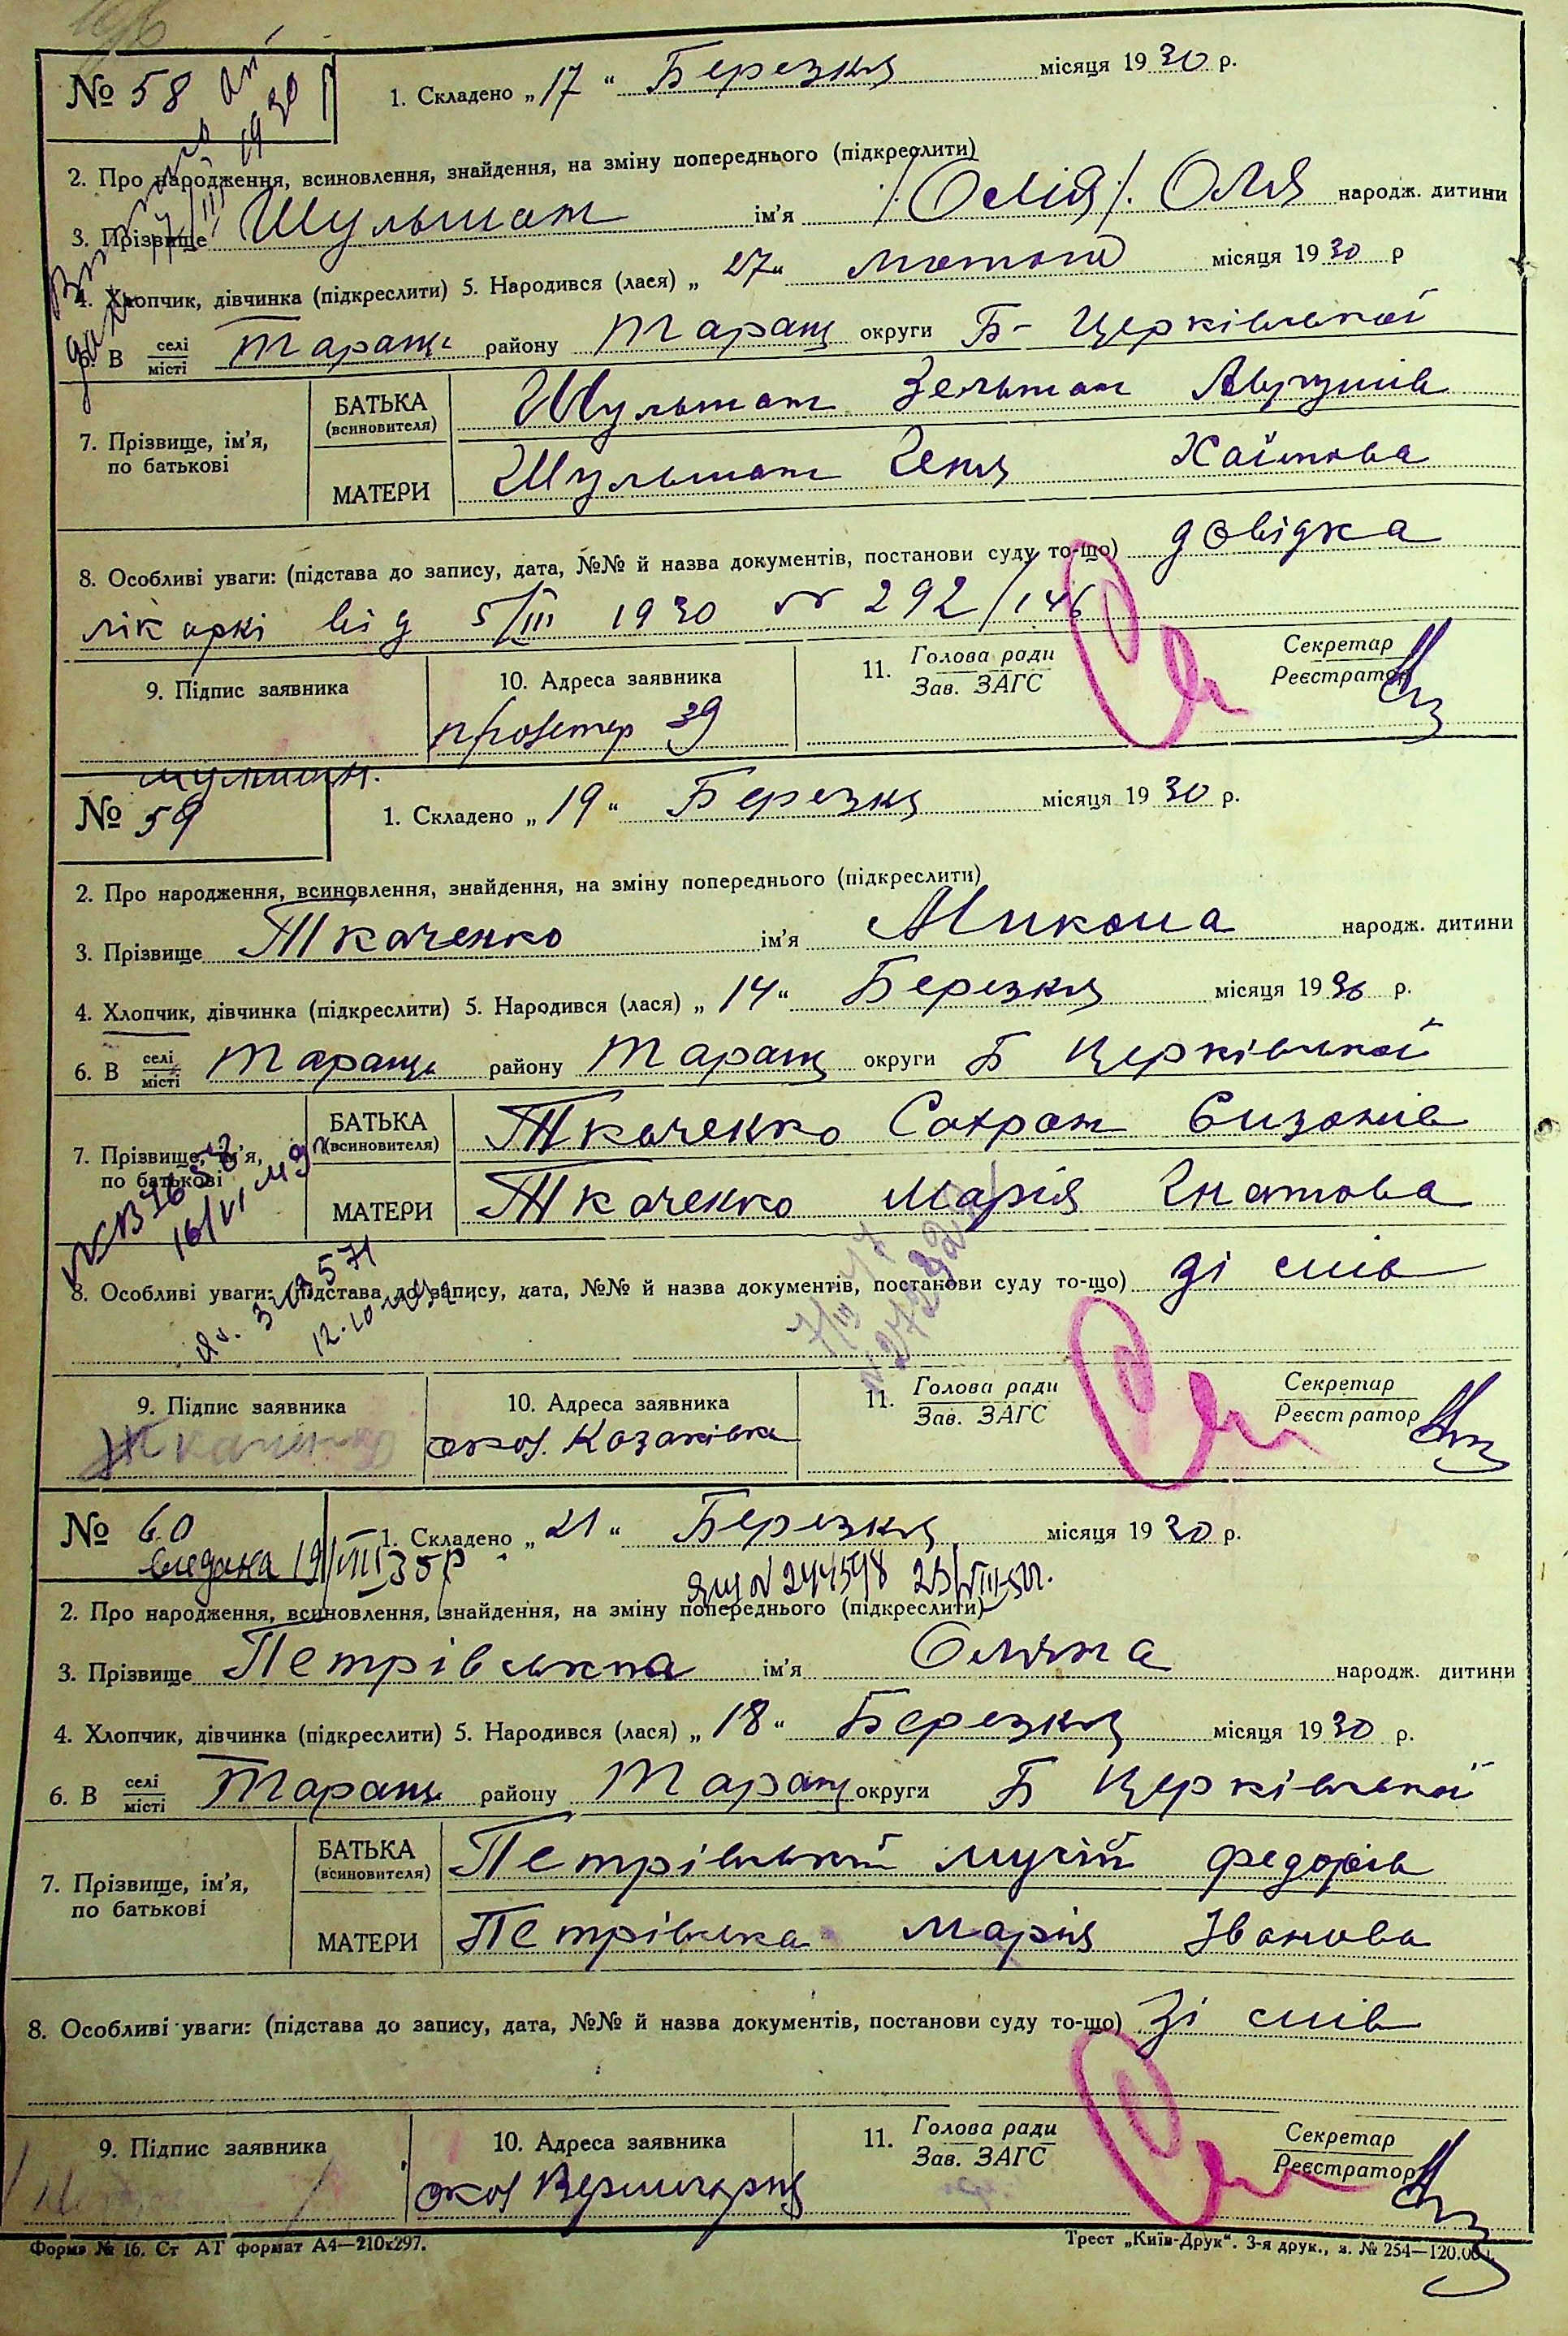 № 58
1. Складено „17“ Березня місяця 1930 р.
2. Про народження, всиновлення, знайдення, на зміну попереднього (підкреслити)
3. Прізвище Шульман ім'я /Олія/. Оля народж. дитини
4. Хлопчик, дівчинка (підкреслити) 5. Народився (лася) „27“ лютого місяця 1930 р
6. В селі місті Тараща району Таращ округи Б-Церківської
7. Прізвище, ім'я, по батькові
БАТЬКА (всиновителя) Шульман Зельман
МАТЕРИ Шульман Геня Хаїмова
8. Особливі уваги: (підстава до запису, дата, №№ й назва документів, постанови суду то-що) довідка
лікарні від 5/III 1930 № 292/146
9. Підпис заявника
10. Адреса заявника
39
11. Голова ради Зав. ЗАГС
Секретар Реєстратор
№ 59
1. Складено „19“ Березня місяця 1930 р.
2. Про народження, всиновлення, знайдення, на зміну попереднього (підкреслити)
3. Прізвище Ткаченко ім'я Микола народж. дитини
4. Хлопчик, дівчинка (підкреслити) 5. Народився (лася) „14“ Березня місяця 1930 р.
6. В селі місті Тараща району Таращ округи Б Церківської
7. Прізвище, ім'я, по батькові
БАТЬКА (всиновителя) Ткаченко Сахрон
МАТЕРИ Ткаченко Марія Гнатова
16/VI
571
8. Особливі уваги: (підстава до запису, дата, №№ й назва документів, постанови суду то-що) зі слів
9. Підпис заявника
Ткаченко
10. Адреса заявника
окол. Козаківка
11. Голова ради Зав. ЗАГС
Секретар Реєстратор
№ 60
1. Складено „21“ Березня місяця 1930 р.
видана 19/VIII 35 р
2. Про народження, всиновлення, знайдення, на зміну попереднього (підкреслити)
3. Прізвище Петрівська ім'я Оляна народж. дитини
4. Хлопчик, дівчинка (підкреслити) 5. Народився (лася) „18“ Березня місяця 1930 р.
6. В селі місті Тараща району Таращ округи Б Церківської
7. Прізвище, ім'я, по батькові
БАТЬКА (всиновителя) Петрівський Федорів
МАТЕРИ Петрівська Марія Іванова
8. Особливі уваги: (підстава до запису, дата, №№ й назва документів, постанови суду то-що) Зі слів
9. Підпис заявника
10. Адреса заявника
окол
11. Голова ради Зав. ЗАГС
Секретар Реєстратор
Форма № 16. Ст АТ формат А4—210х297.
Трест „Київ-Друк“. 3-я друк., з. № 254—120.000.